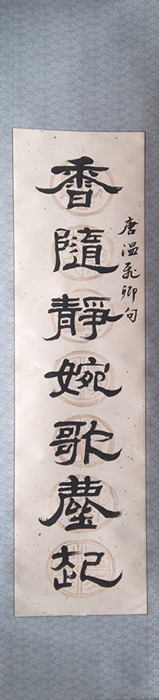 唐温飛卿句
香隨靜婉歌塵起